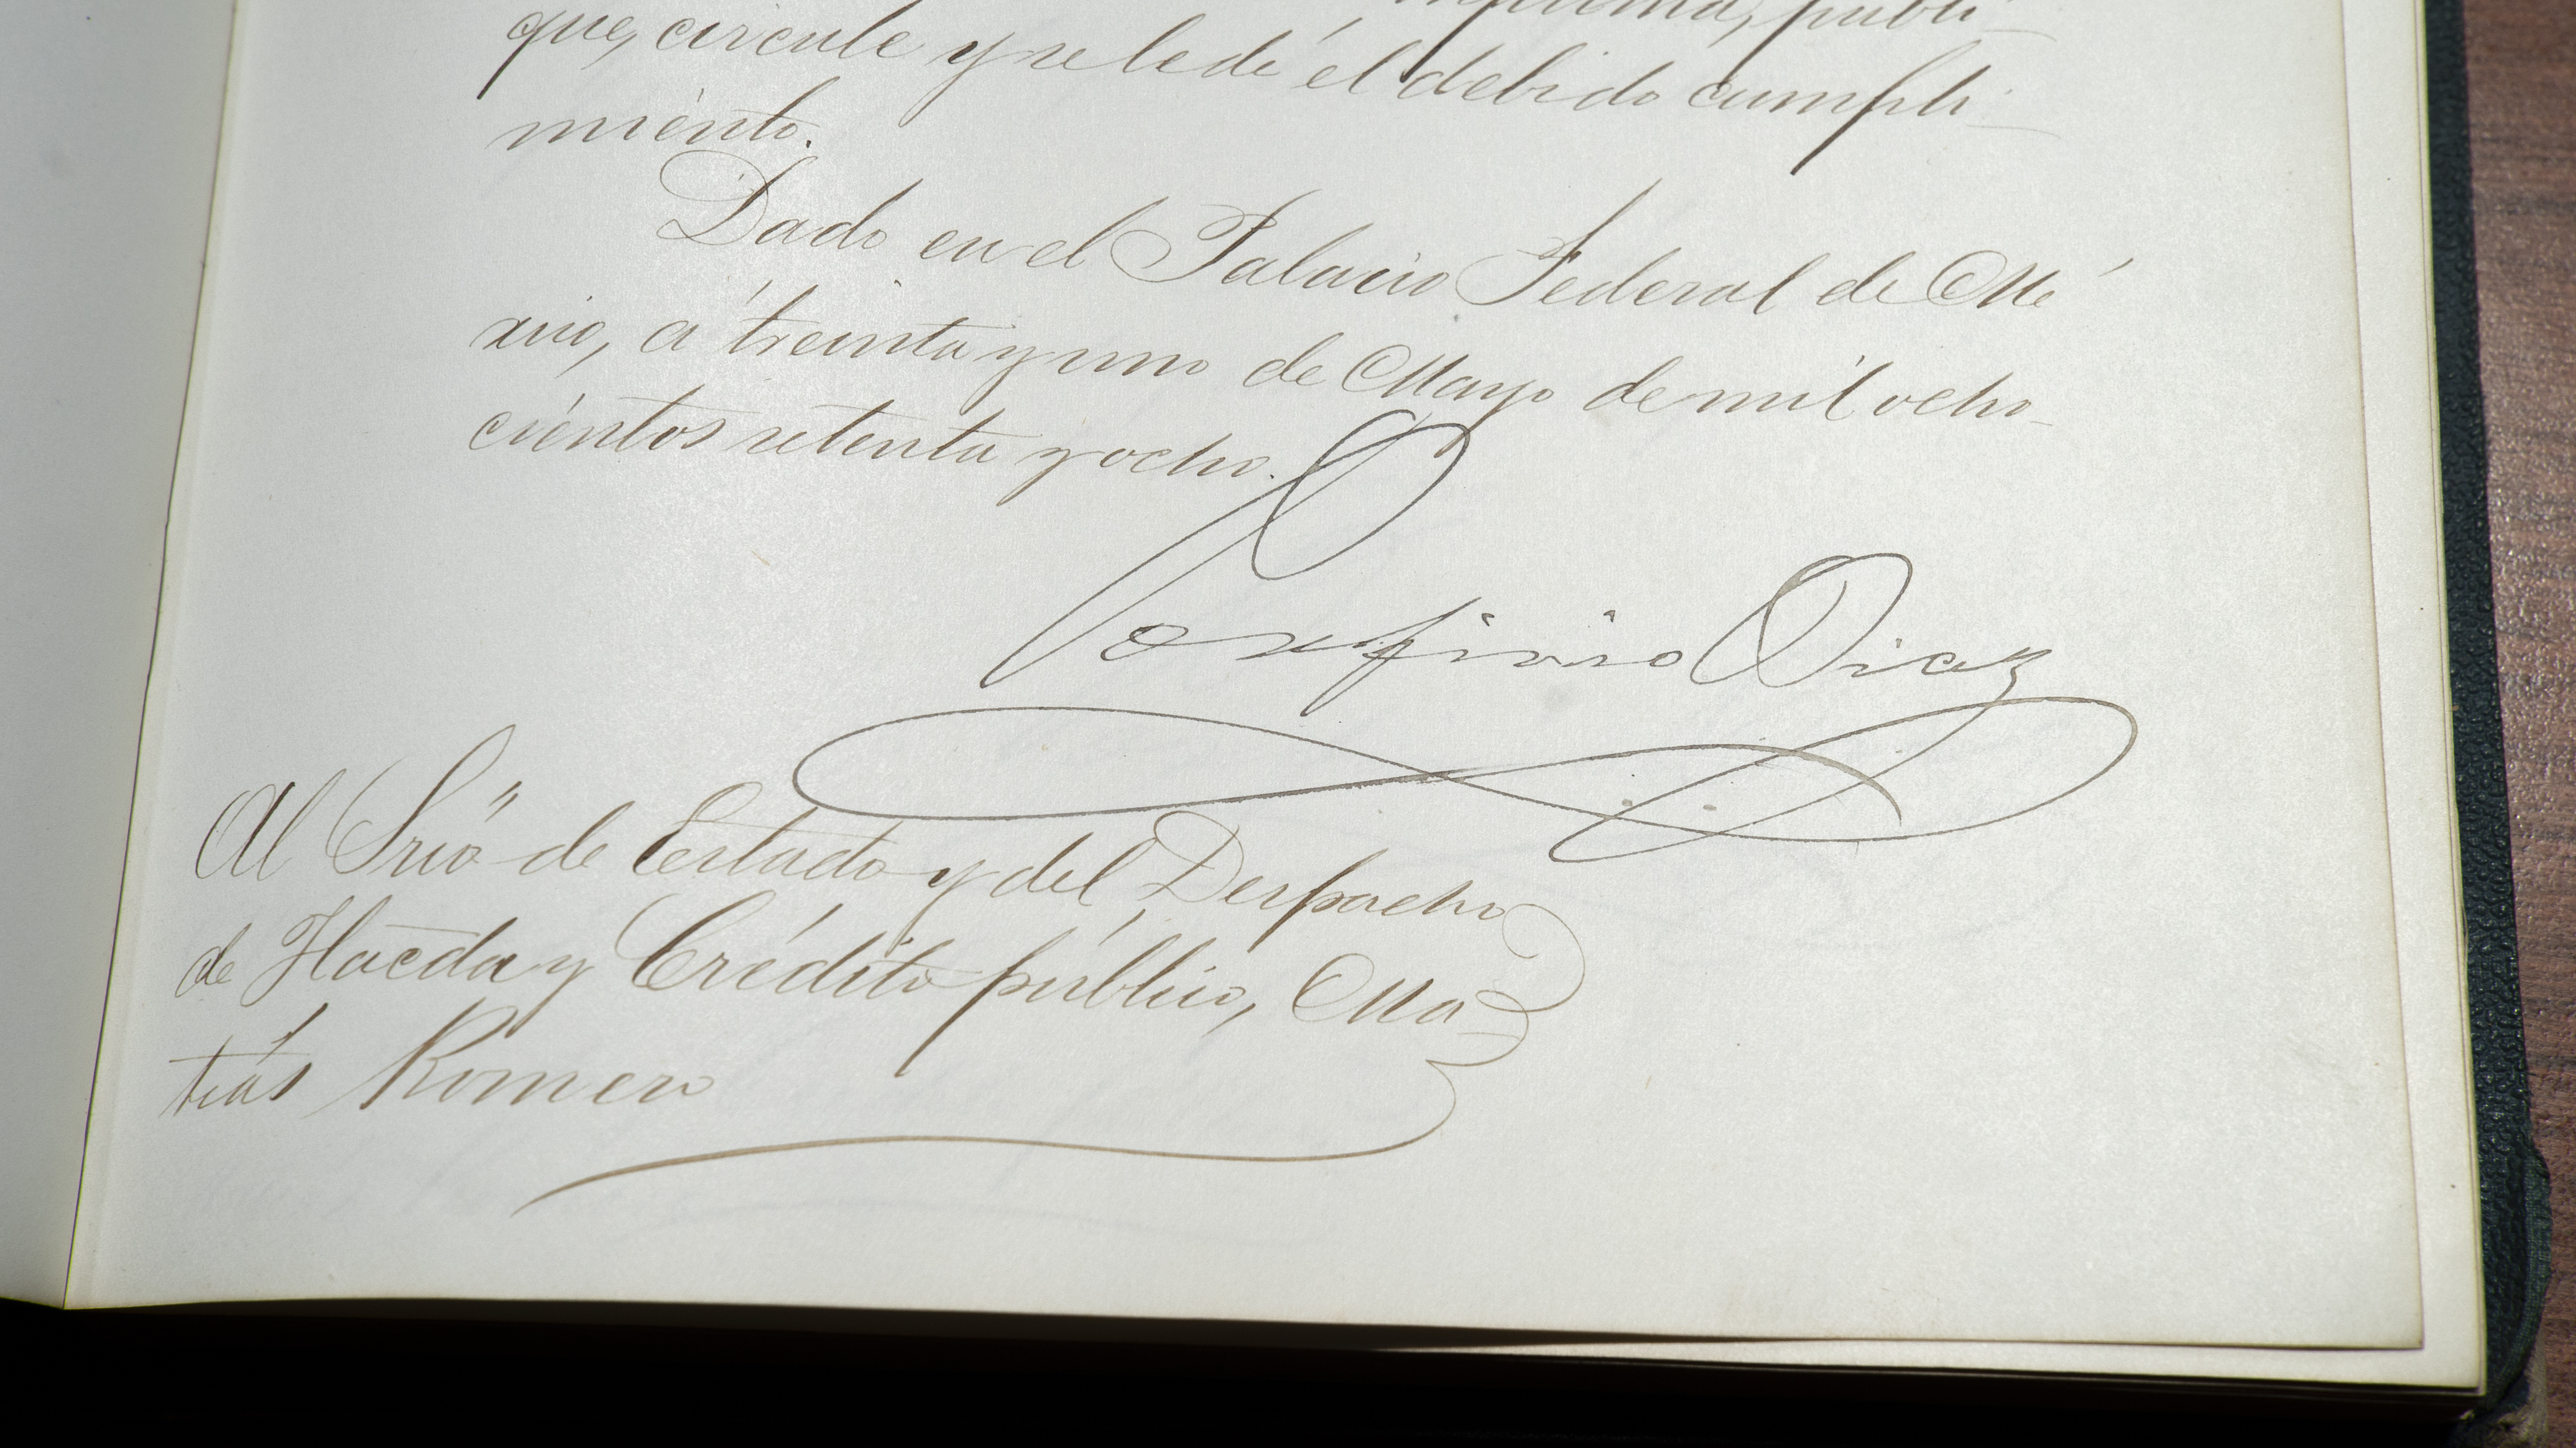 imprima, publi-
que, circule y se le dé el debido cumpli-
miento.
Dado en el Palacio Federal de Mé
xico, á treinta y uno de Mayo de mil ocho-
cientos setenta y ocho.
Porfirio Diaz
Al Srio de Estado y del Despacho
de Hacda y Crédito público, Ma-
tías Romero